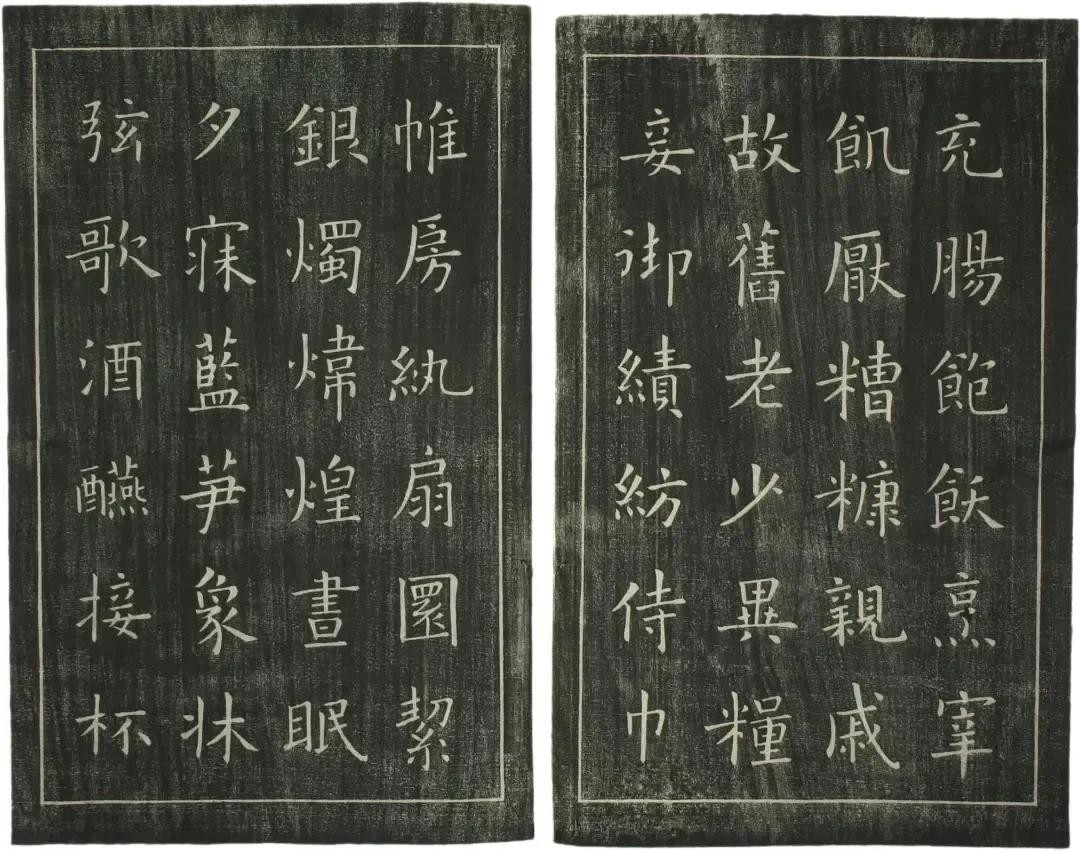 充腸飽飫烹宰
飢厭糟糠親戚
故舊老少異糧
妾御績紡侍巾
帷房紈扇圓絜
銀燭煒煌晝眠
夕寐藍笋象牀
弦歌酒醼接杯